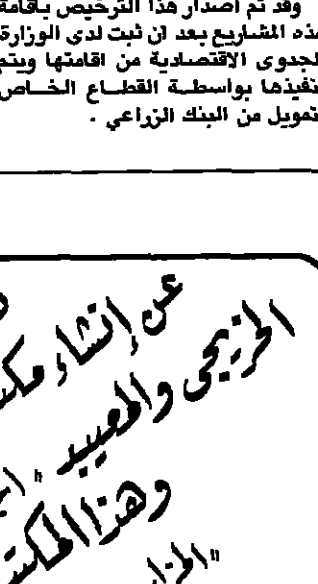 وقد تم اصدار هذا الترخيص باقامة
هذه المشاريع بعد ان ثبت لدى الوزارة
لجدوى الاقتصادية من اقامتها ويتم
تنفيذها بواسطة القطاع الخاص
تمويل من البنك الزراعي .
عن إنشاء
الخريجى والمعيبد
وهذا المكتب